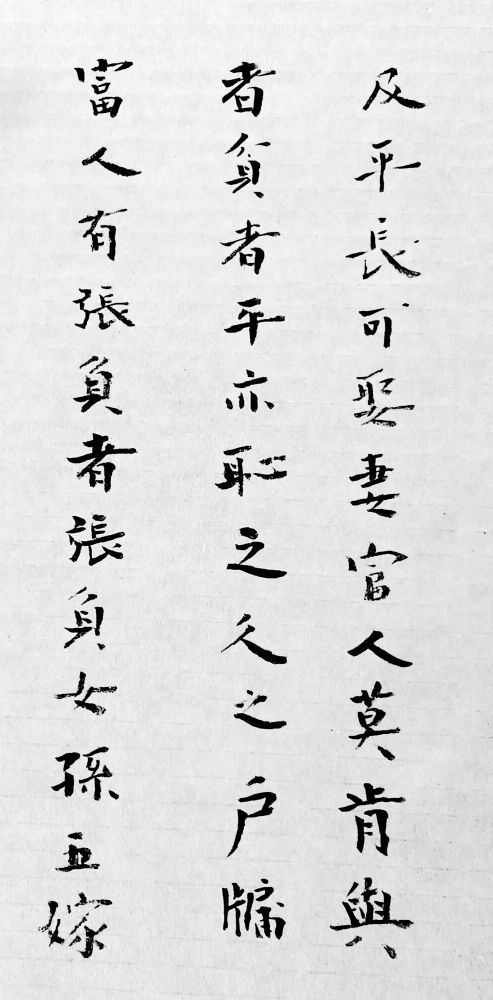 及平長可娶妻富人莫肯與
者貧者平亦恥之久之户牖
富人有張負者張負女孫五嫁